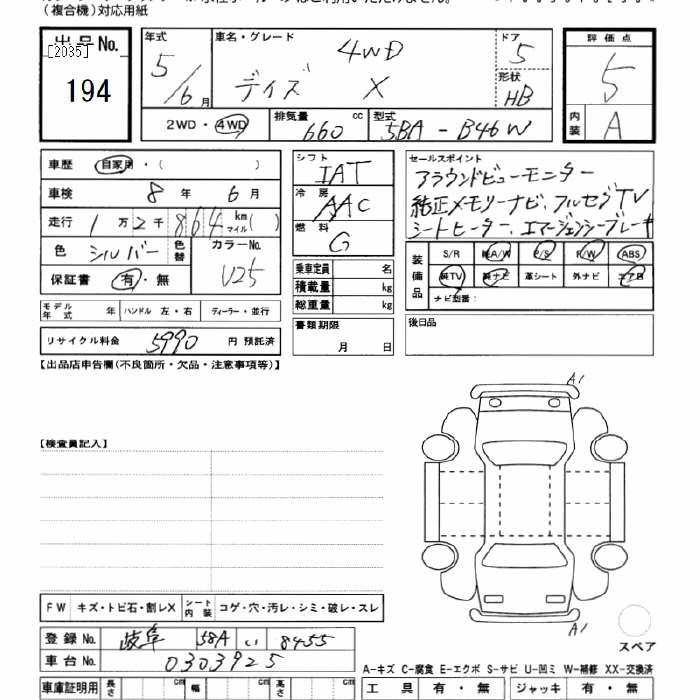 （複合機）対応用紙
出品No.
[2035]
194
年式
5/6月
車名・グレード
4WD
デイズ X
ドア
5
形状
HB
2WD・4WD
排気量
660 cc
型式
5BA-B46W
評価点
5
内装
A
車歴 自家用・( )
車検 8年 6月
走行 1万2千864 km マイル( )
色 シルバー 色替 カラーNo. V25
保証書 有・無
モデル年式 年 ハンドル 左・右 ディーラー・並行
リサイクル料金 5990 円 預託済
シフト
IAT
冷房
AAC
燃料
G
乗車定員 名
積載量 kg
総重量 kg
書類期限
月 日
セールスポイント
アラウンドビューモニター
純正メモリーナビ、フルセグTV
シートヒーター、エマージェンシーブレーキ
装備品
S/R 純A/W P/S P/W ABS
純TV 純ナビ 革シート 外ナビ エアB
ナビ型番：
後日品
【出品店申告欄(不良箇所・欠品・注意事項等)】
A1
【検査員記入】
FW キズ・トビ石・割レX シート内装 コゲ・穴・汚レ・シミ・破レ・スレ
登録No. 岐阜 58A い 8455
車台No. 0303925
A1
スペア
A-キズ C-腐食 E-エクボ S-サビ U-凹ミ W-補修 XX-交換済
車庫証明用 長さ cm 幅 cm 高さ cm
工具 有・無 ジャッキ 有・無